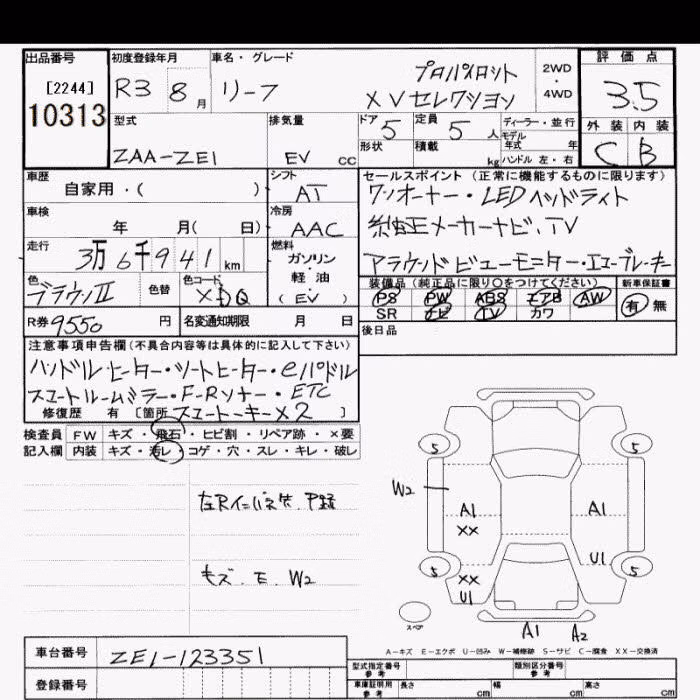 出品番号
[2244]
10313
初度登録年月
R3 8月
車名・グレード
リーフ
プロパイロット
XVセレクション
2WD
・
4WD
評価点
3.5
外装 内装
C B
型式
ZAA-ZE1
排気量
EV CC
ドア 5
定員 5 人
形状
積載 kg
ディーラー・並行
モデル
年式 年
ハンドル 左・右
車歴
自家用・( )
シフト
AT
車検
年 月( 日)
冷房
AAC
走行
3万6千941km
燃料
ガソリン
・
軽油
(EV)
色
ブラウンⅡ
色替
色コード
XDQ
R券 9550 円
名変通知期限 月 日
セールスポイント(正常に機能するものに限ります)
ワンオーナー・LEDヘッドライト
純正メーカーナビ、TV
アラウンドビューモニター・エコブレーキ
装備品(純正品に限り〇をつけてください)
PS PW ABS エアB AW
SR ナビ TV カワ
新車保証書
有 無
後日品
注意事項申告欄(不具合内容等は具体的に記入して下さい)
ハンドルヒーター・シートヒーター・eパドル
スマートルームミラー・F-Rソナー・ETC
修復歴 有 [箇所 スマートーキー×2 ]
検査員 FW キズ・飛石・ヒビ割・リペア跡・×要
記入欄 内装 キズ・汚レ・コゲ・穴・スレ・キレ・破レ
キズ、E、W2
5 5
W2
A1 A1
XX
U1
5 XX 5
U1
スペア
A1 A2
A-キズ E-エクボ U-凹み W-補修跡 S-サビ C-腐食 XX-交換済
車台番号 ZE1-123351
登録番号
型式指定番号
参考
類別区分番号
参考
車庫証明用
参考
長さ cm 幅 cm 高さ cm